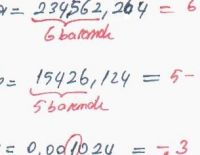 = 234562,264 = 6
6 basamak
= 15426,124 = 5-
5 basamak
= 0,001024 = -3